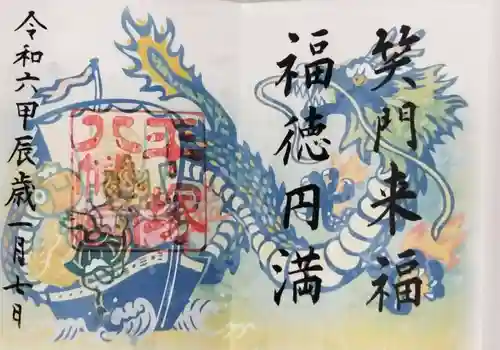 笑門来福
福徳円満
令和六甲辰歳一月七日
平塚
八幡